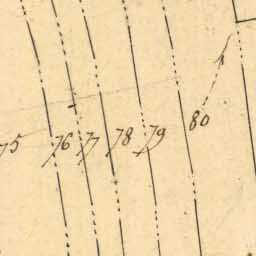 75 76 77 78 79 80